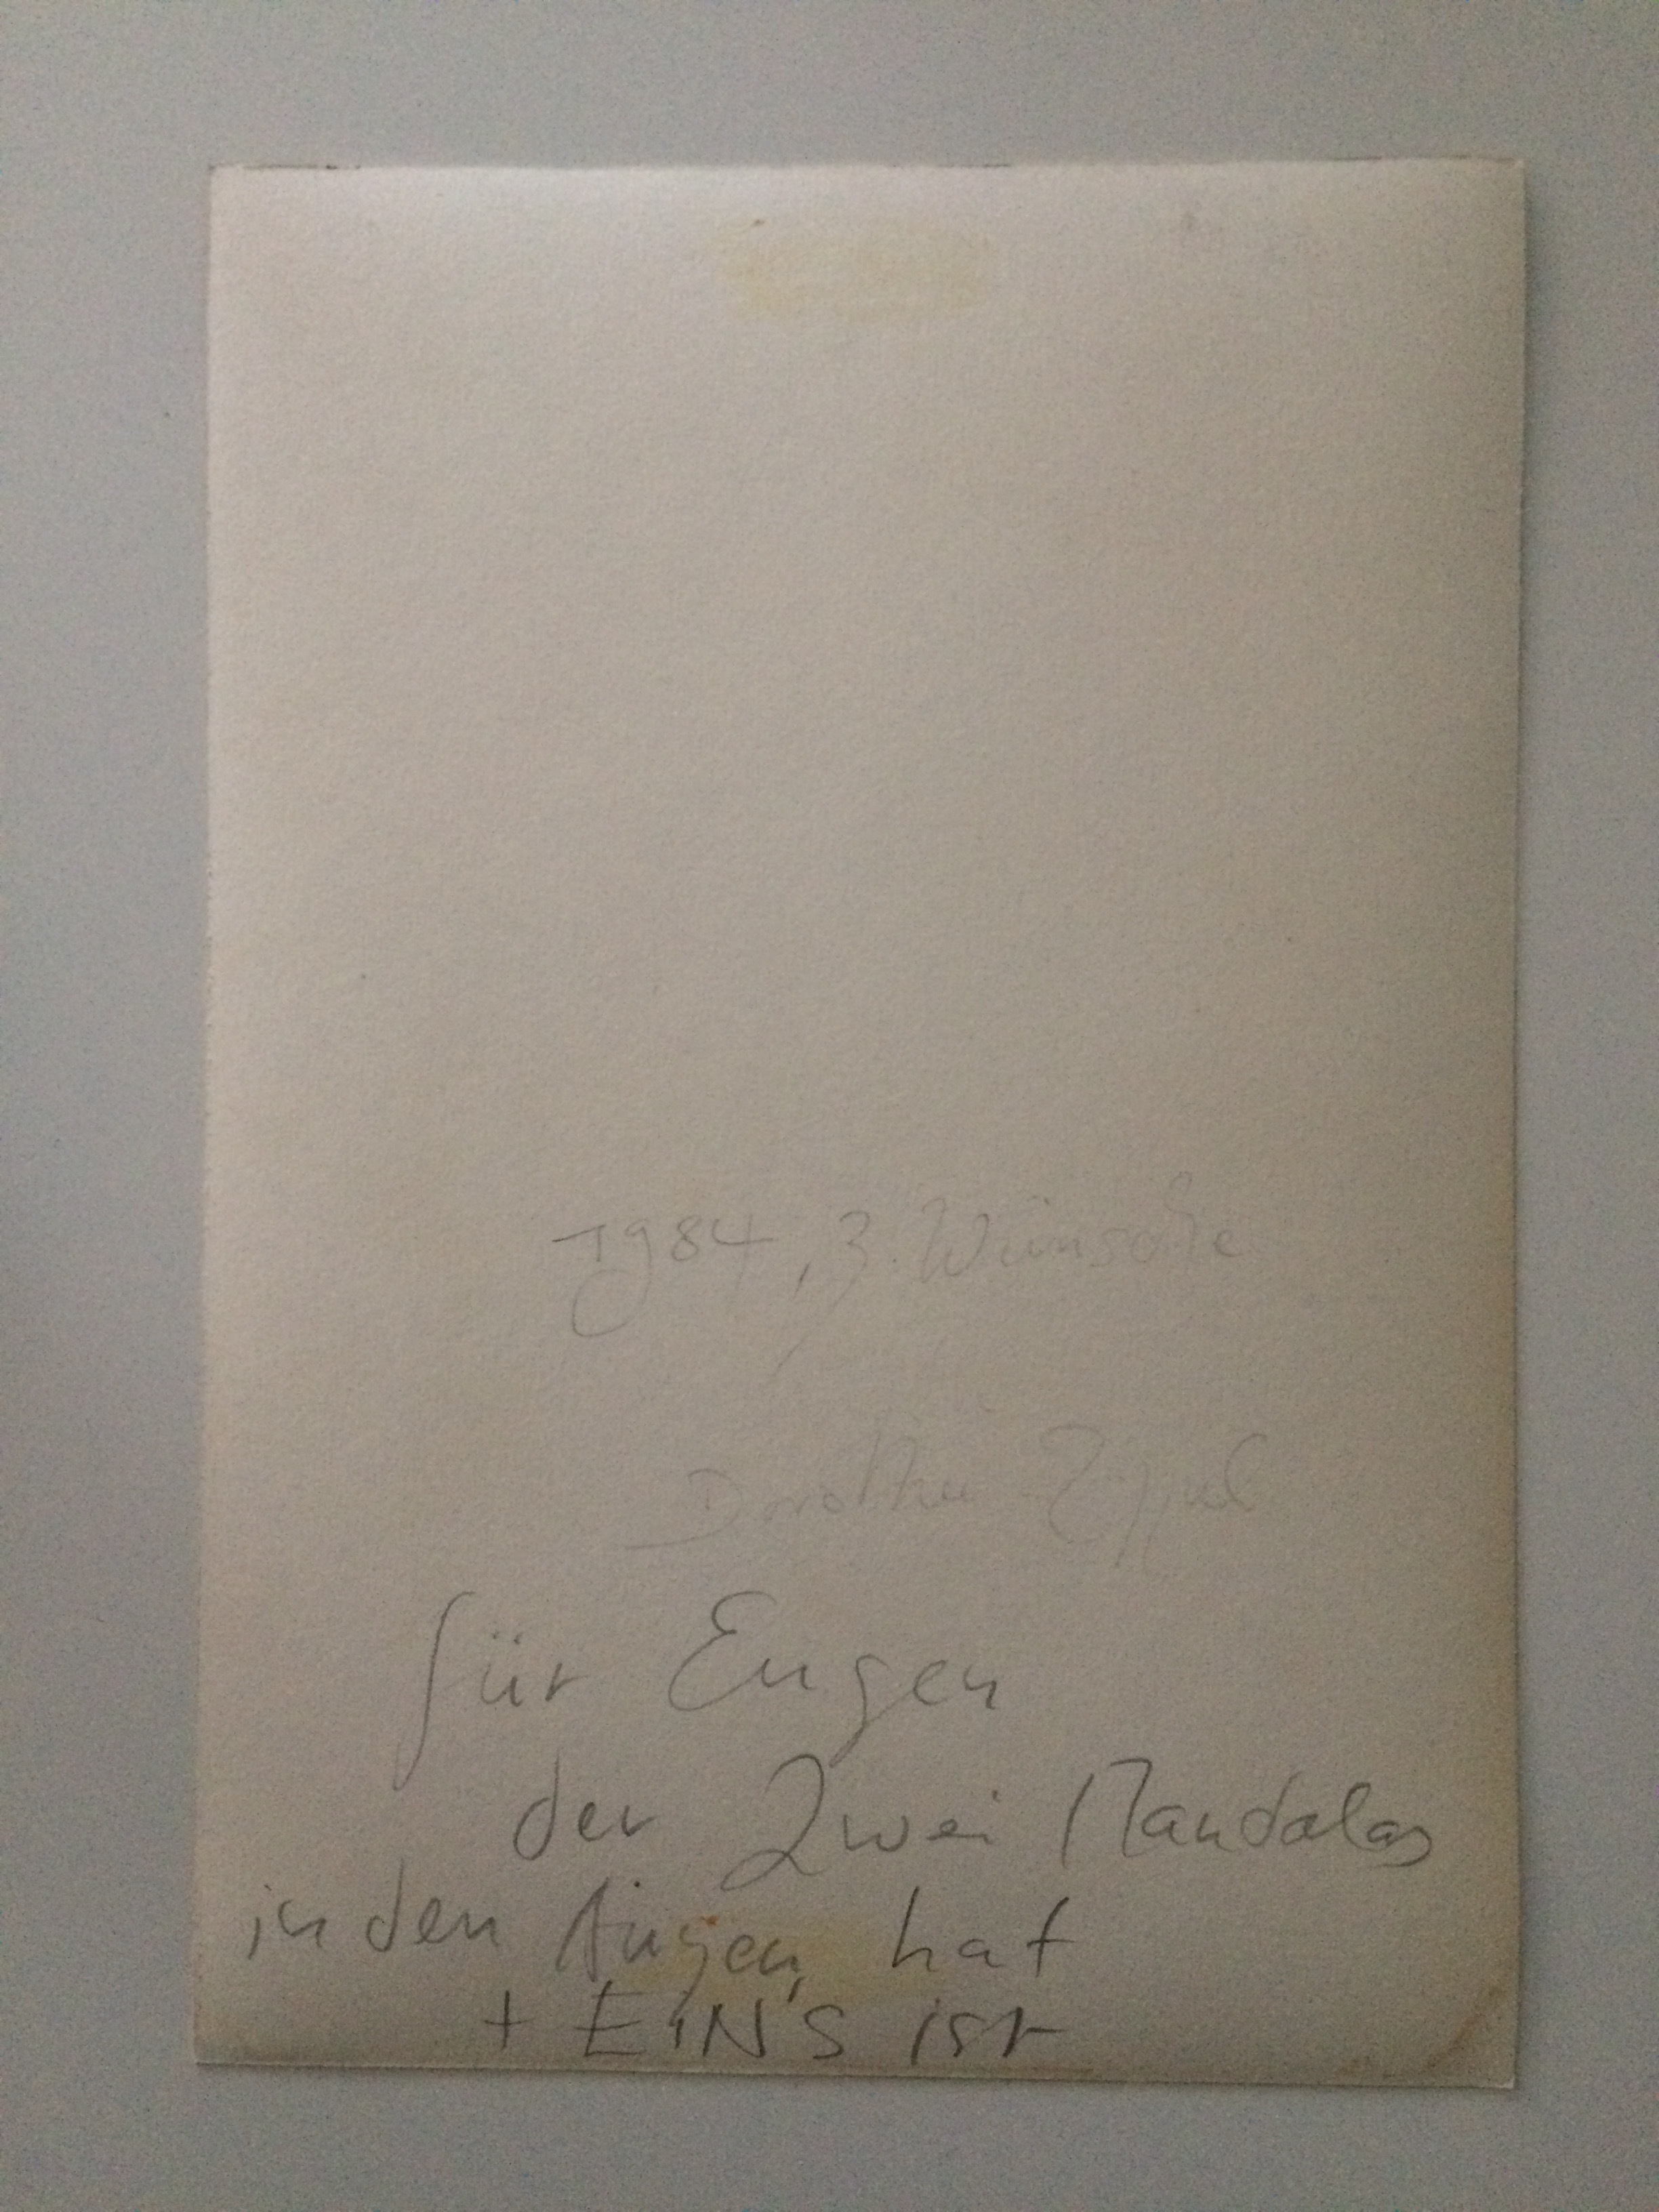 1984, 3. Wünsche
Dorothea
für Eugen
der Zwei Mandalas
in den Augen hat
+ EiNS ist